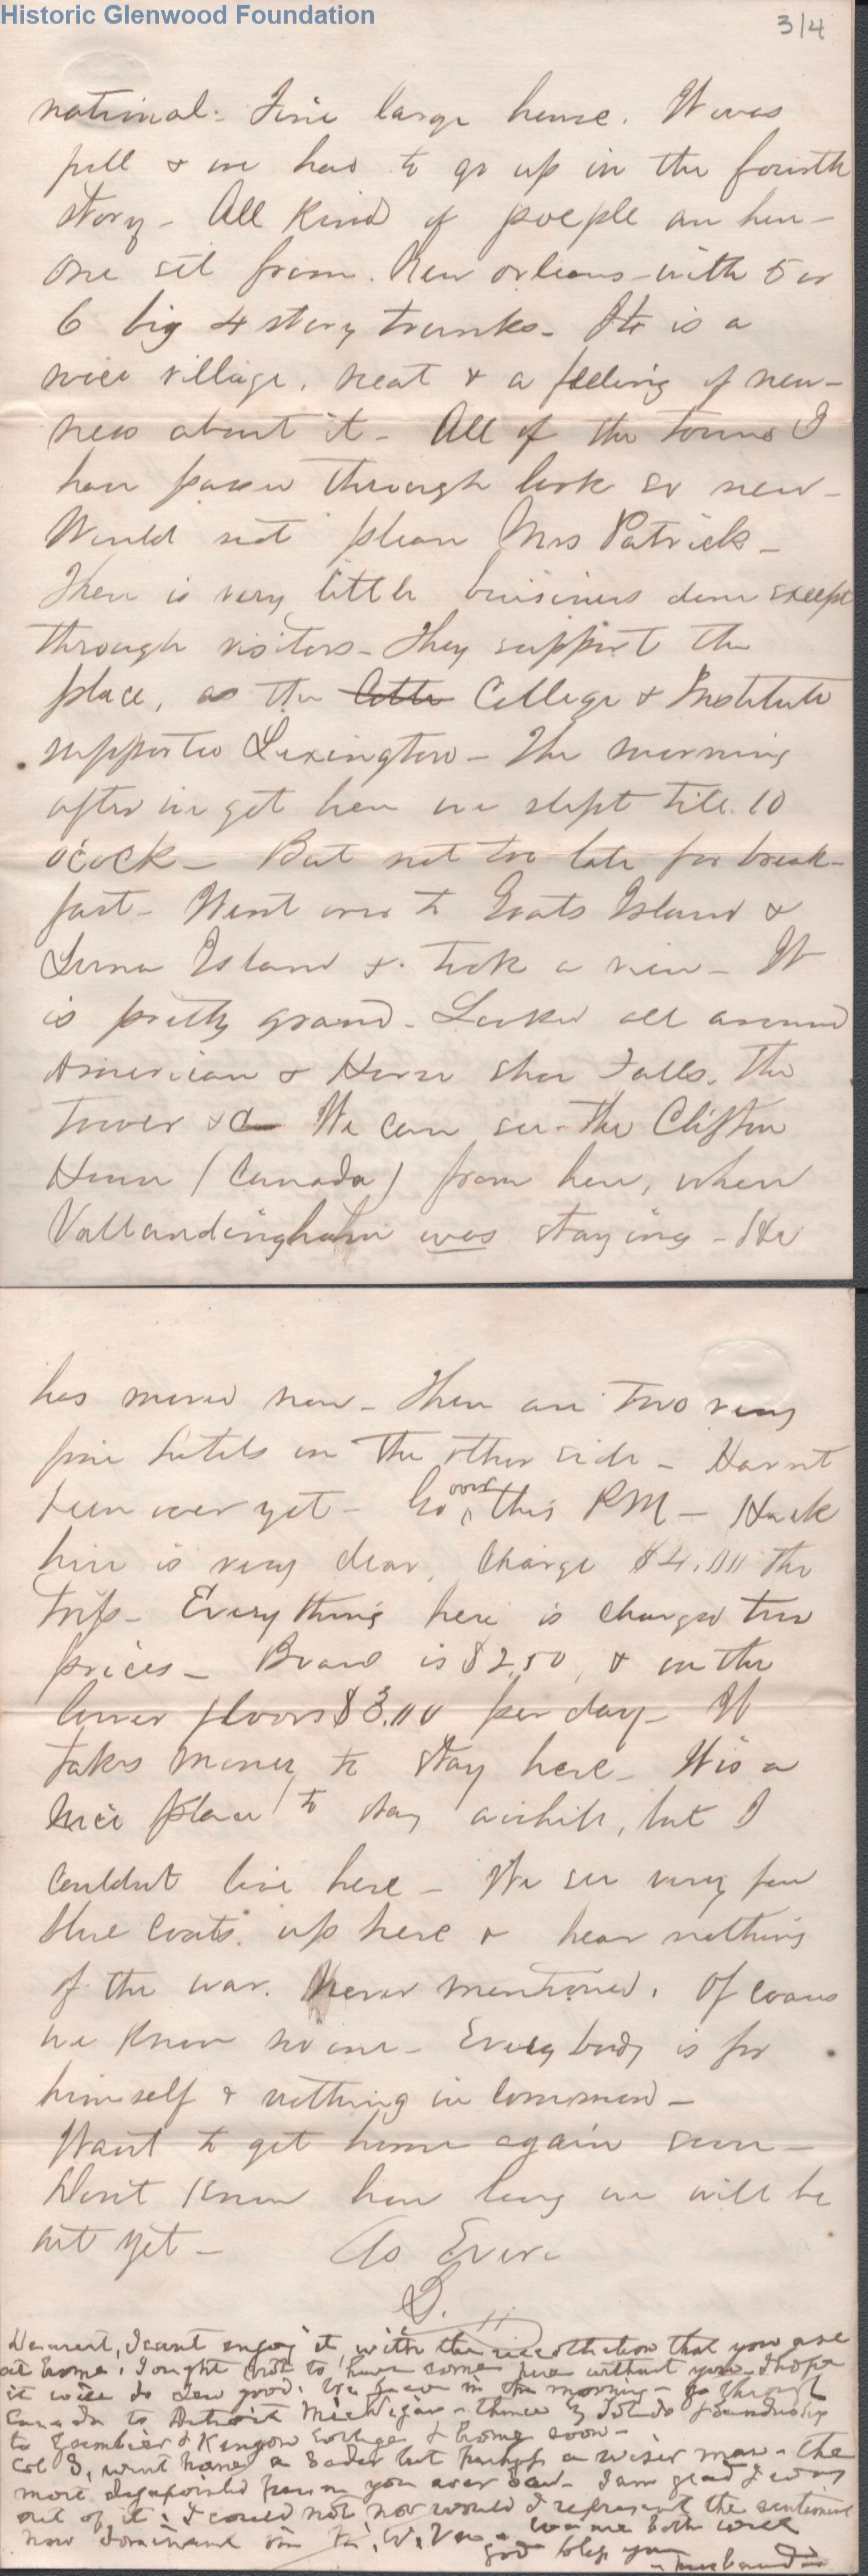 Historic Glenwood Foundation
3/4
national. Fine large house. It was
full & we had to go up in the fourth
story - All kind of poeple are here -
One set from New Orleans with 5 or
6 big 4 story trunks - It is a
nice village, neat & a feeling of new-
ness about it - All of the towns I
have passed through look so new -
Would not please Mrs Patrick -
There is very little buisiness done except
through visitors - They support the
place, as the College & Institute
supported Lexington - The morning
after we got here we slept till 10
oclock - But not too late for break-
fast - Went over to Goats Island &
Luna Island & took a view - It
is pretty grand - Looked all around
American & Horse shoe Falls. The
Tower &c We can see the Clifton
House (Canada) from here, where
Vallandingham was staying - He
has moved now - There are two very
fine hotels on the other side - Havnt
been over yet - Go over this PM - Hack
hire is very dear, charge $4.00 the
trip - Every thing here is charged two
prices - Board is $2.50, & on the
lower floors $3.00 per day - It
takes money to stay here - It is a
nice place to stay awhile, but I
couldnt live here - We see very few
blue coats up here & hear nothing
of the war. Never mentioned. Of course
we know no one - Every body is for
himself & nothing in common -
Want to get home again soon -
Dont know how long we will be
out yet - As Ever
D.
Dearest, I cant enjoy it with the recollection that you are
at home. I ought not to have come here without you - I hope
it will do Dew good. We leave in the morning - go through
Canada to Detroit Michigan - thence by Toledo & Sandusky
to Gambier & Kenyon College & home soon -
Col S, went home a sader but perhaps a wiser man - the
more disapointed person you ever saw - I am glad I was
out of it; I could not nor would I represent the sentiment
now dominant in W. Va. - we are both well
God bless you
- husband -